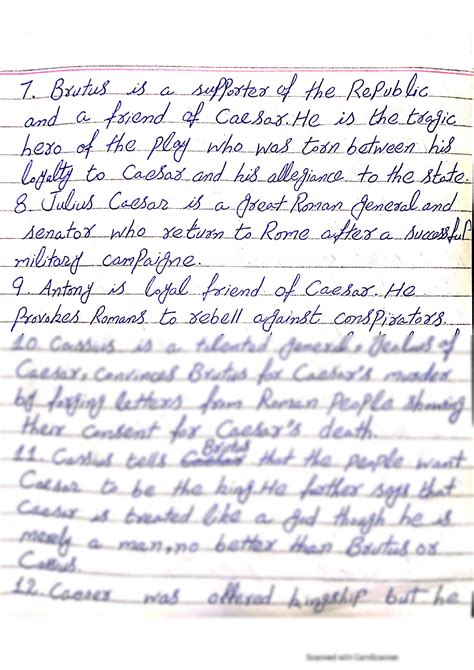 7. Brutus is a supporter of the Republic
and a friend of Caesar. He is the tragic
hero of the play who was torn between his
loyalty to Caesar and his allegiance to the state.
8. Julius Caesar is a great Roman general and
senator who return to Rome after a successful
military campaigne.
9. Antony is loyal friend of Caesar. He
Provokes Romans to rebell against conspirators.
10. Cassius is a talented general, Jealous of
Caesar, convinces Brutus for Caesar's murder
by forging letters from Roman People showing
their consent for Caesar's death.
11. Cassius tells Brutus that the people want
Caesar to be the king. He further says that
Caesar is treated like a god though he is
merely a man, no better than Brutus or
Cassius.
12. Caeser was offered kingship but he
Scanned with CamScanner